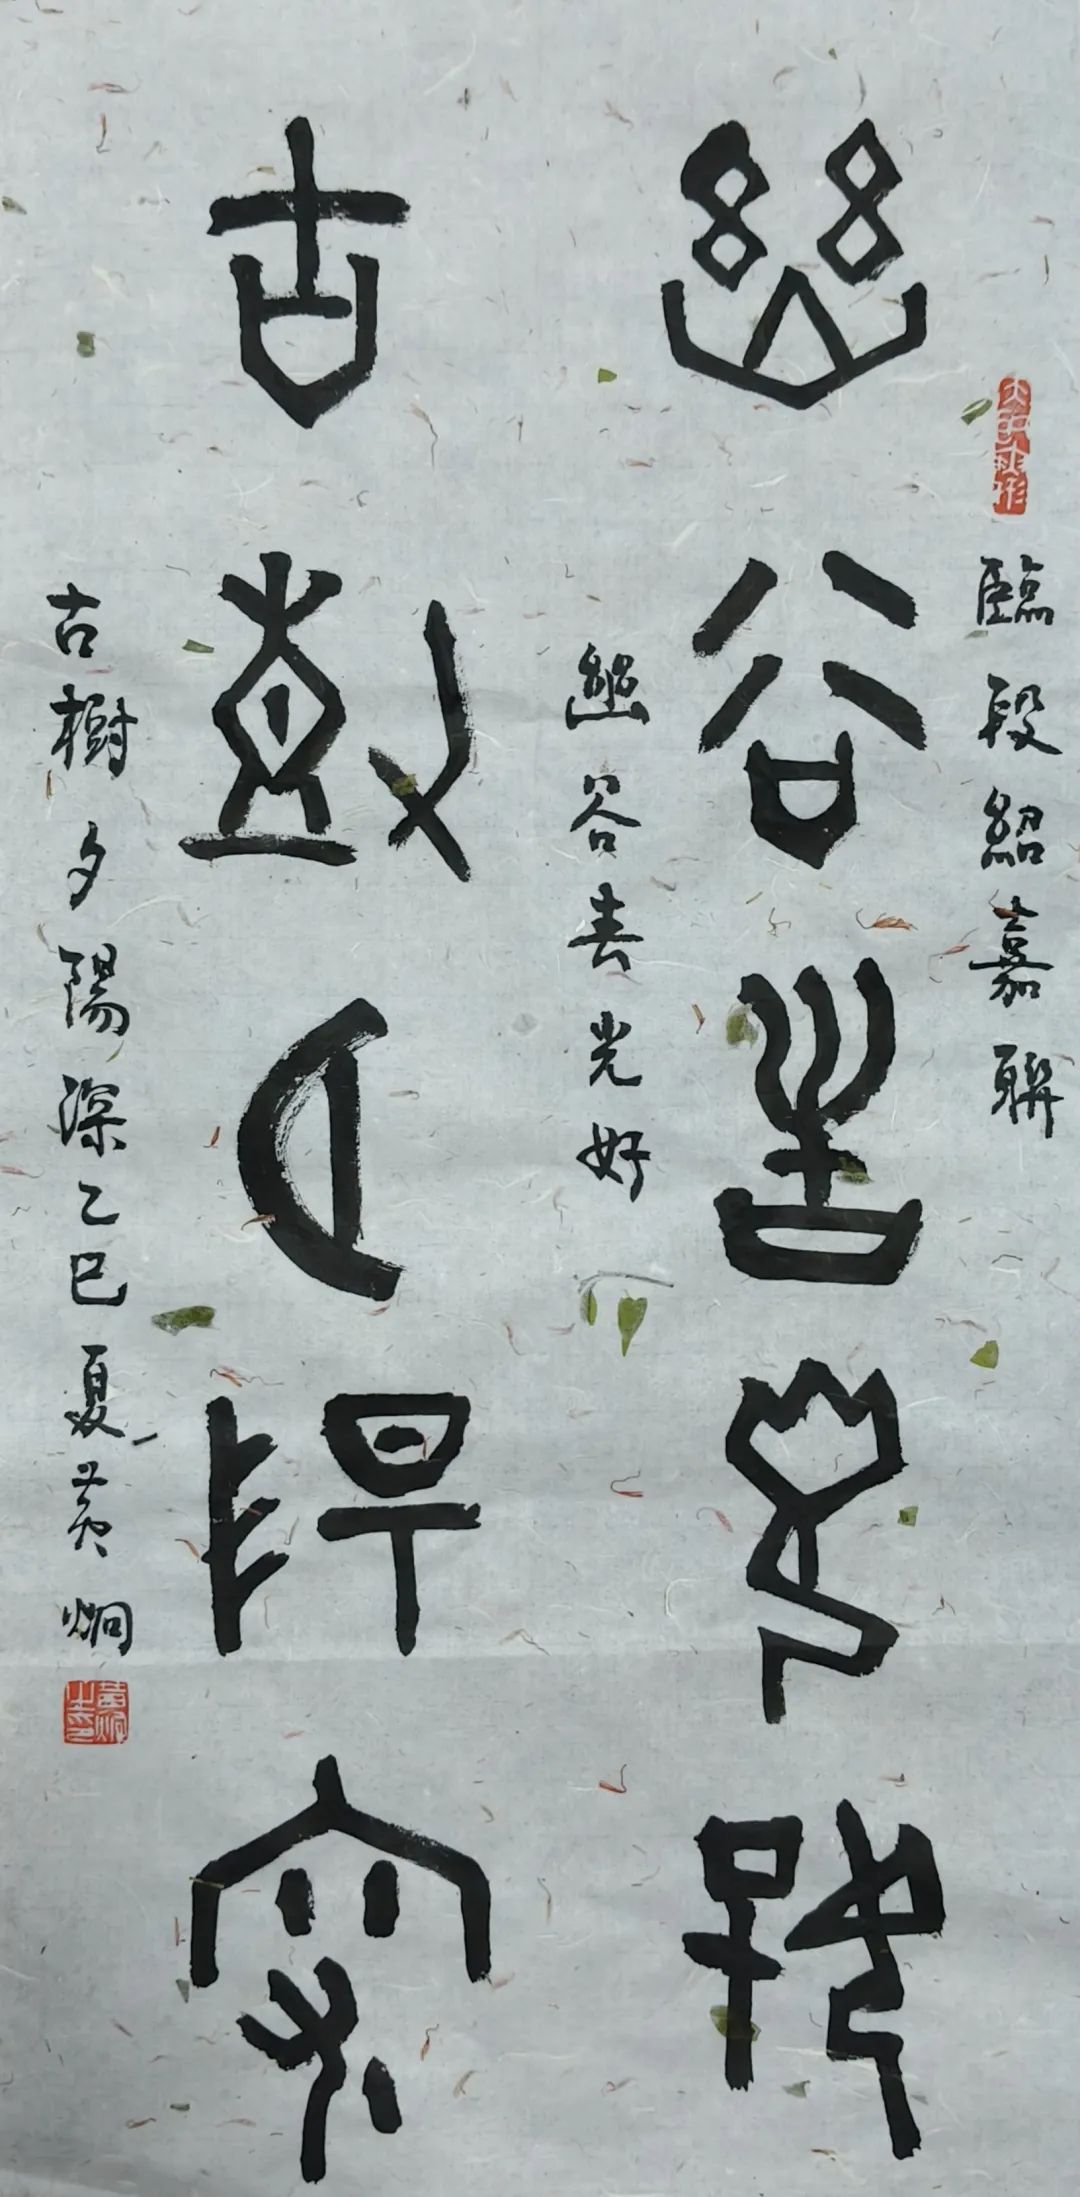 臨段紹嘉聯
幽谷春光好
幽谷春光好
古樹夕陽深
古樹夕陽深乙巳夏黃炯